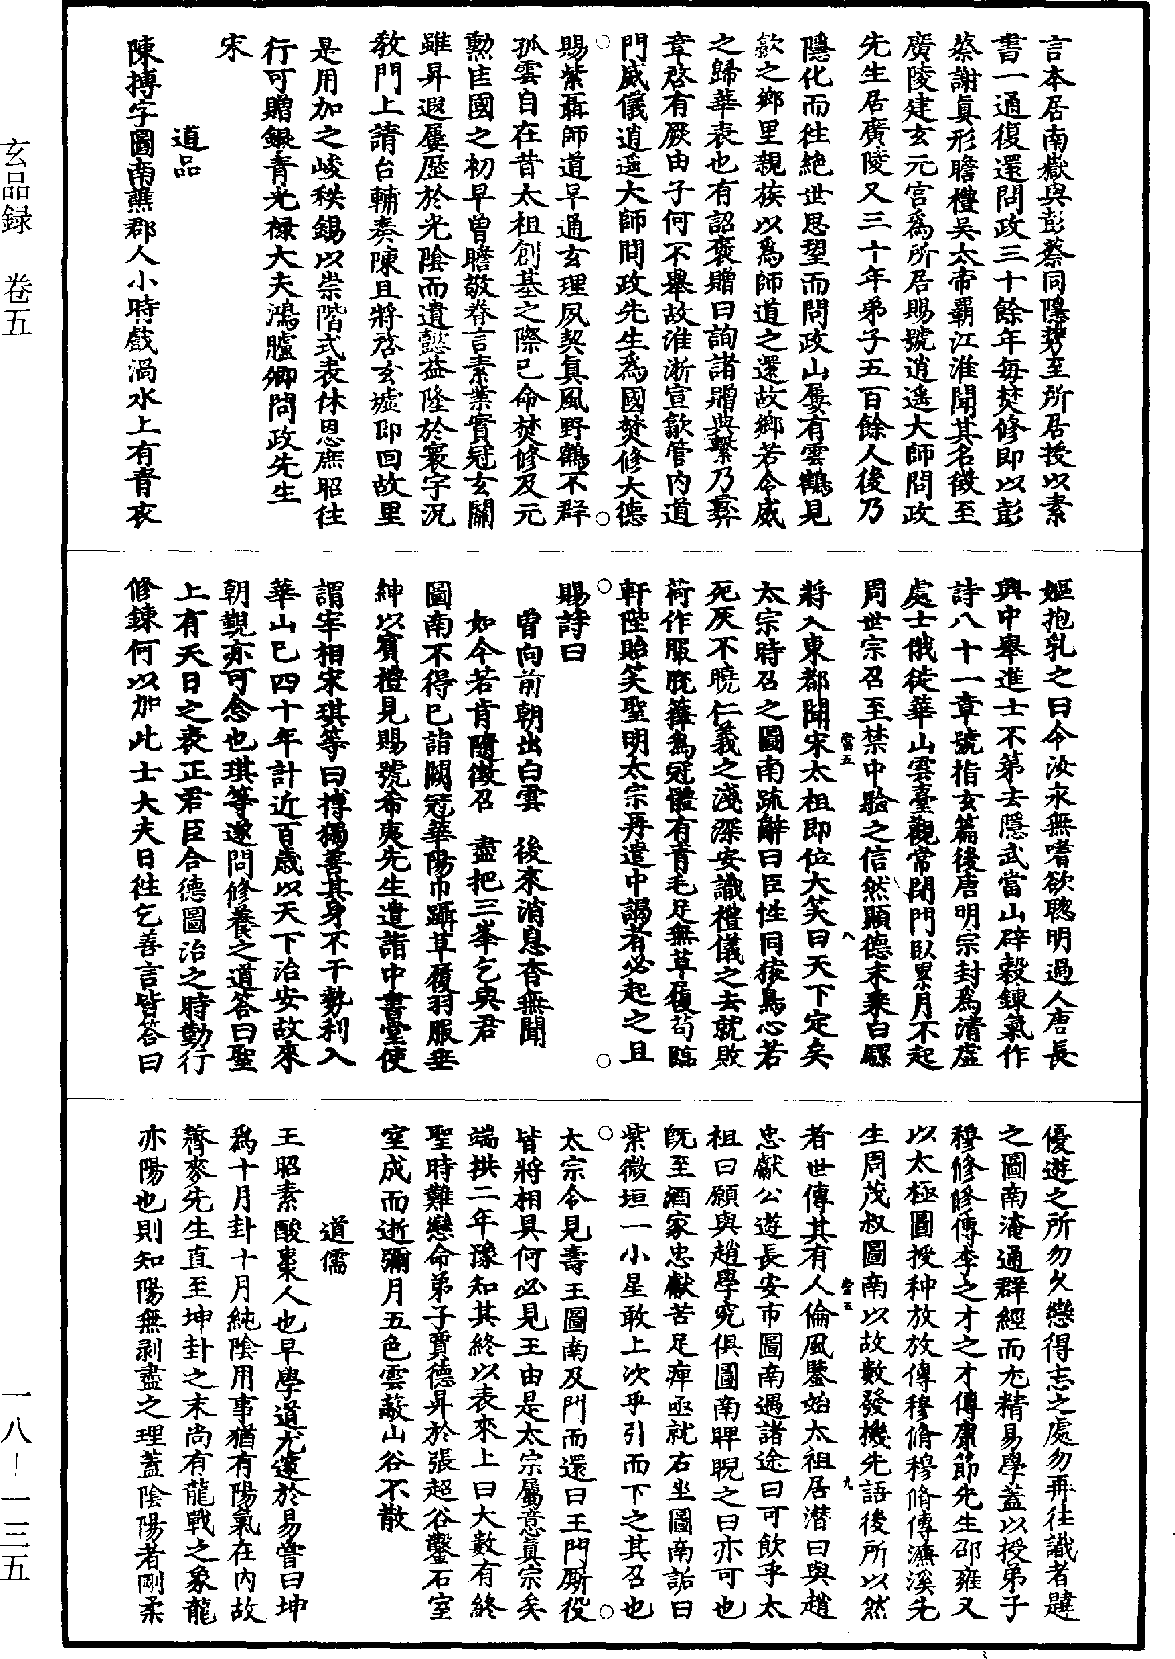 言本居南嶽與彭蔡同隱勞至所居授以素
書一通復還問政三十餘年每焚修即以彭
蔡謝真形瞻禮吳太帝霸江淮聞其名徵至
廣陵建玄元宮為所居賜號逍遙大師問政
先生居廣陵又三十年弟子五百餘人後乃
隱化而往絕世思望而問政山屢有雲鶴見
歙之鄉里親族以為師道之還故鄉若令威
之歸華表也有詔褒贈曰詢諸贈典繫乃彝
章啓有厥由子何不舉故淮浙宣歙管內道
門威儀逍遙大師問政先生為國焚修大德
賜紫聶師道早通玄理夙契真風野鶴不群
孤雲自在昔太祖創基之際已命焚修及元
勳匡國之初早曾瞻敬眷言素業實冠玄關
雖昇遐屢歷於光陰而遺懿益隆於寰宇況
教門上請台輔奏陳且將啓玄墟即回故里
是用加之峻秩錫以崇階式表休恩庶昭往
行可贈銀青光祿大夫鴻臚卿問政先生
宋
道品
陳摶字圖南譙郡人小時戲渦水上有青衣
嫗抱乳之曰令汝永無嗜欲聰明過人唐長
興中舉進士不第去隱武當山辟穀鍊氣作
詩八十一章號指玄篇後唐明宗封為清虛
處士俄徙華山雲臺觀常閉門臥累月不起
周世宗召至禁中驗之信然顯德末乘白騾
當五 八
將入東都聞宋太祖即位大笑曰天下定矣
太宗時召之圖南疏辭曰臣性同猿鳥心若
死灰不曉仁義之淺深安識禮儀之去就敗
荷作服脫籜為冠體有青毛足無草履苟臨
軒陛貽笑聖明太宗再遣中謁者必起之且
賜詩曰
曾向前朝出白雲 後來消息杳無聞
如今若肯隨徵召 盡把三峯乞與君
圖南不得已詣闕冠華陽巾躡草履羽服垂
紳以賓禮見賜號希夷先生遣詣中書堂使
謂宰相宋琪等曰摶獨善其身不干勢利入
華山已四十年計近百歲以天下治安故來
朝覲亦可念也琪等遂問修養之道答曰聖
上有天日之表正君臣合德圖治之時勤行
修鍊何以加此士大夫日往乞善言皆答曰
優遊之所勿久戀得志之處勿再往識者韙
之圖南淹通群經而尤精易學蓋以授弟子
穆修修傳李之才之才傳康節先生邵雍又
以太極圖授种放放傳穆脩穆脩傳濂溪先
生周茂叔圖南以故數發機先語後所以然
當五 九
者世傳其有人倫風鑒始太祖居潛曰與趙
忠獻公遊長安市圖南遇諸途曰可飲乎太
祖曰願與趙學究俱圖南睥睨之曰亦可也
既至酒家忠獻苦足痺亟就右坐圖南詬曰
紫微垣一小星敢上次乎引而下之其召也
太宗令見壽王圖南及門而還曰王門厮役
皆將相具何必見王由是太宗屬意真宗矣
端拱二年豫知其終以表來上曰大數有終
聖時難戀命弟子賈德昇於張超谷鑿石室
室成而逝彌月五色雲蔽山谷不散
道儒
王昭素酸棗人也早學道尤邃於易嘗曰坤
為十月卦十月純陰用事猶有陽氣在內故
薺麥先生直至坤卦之末尚有龍戰之象龍
亦陽也則知陽無剥盡之理蓋陰陽者剛柔
玄品録 卷五
一八-一三五